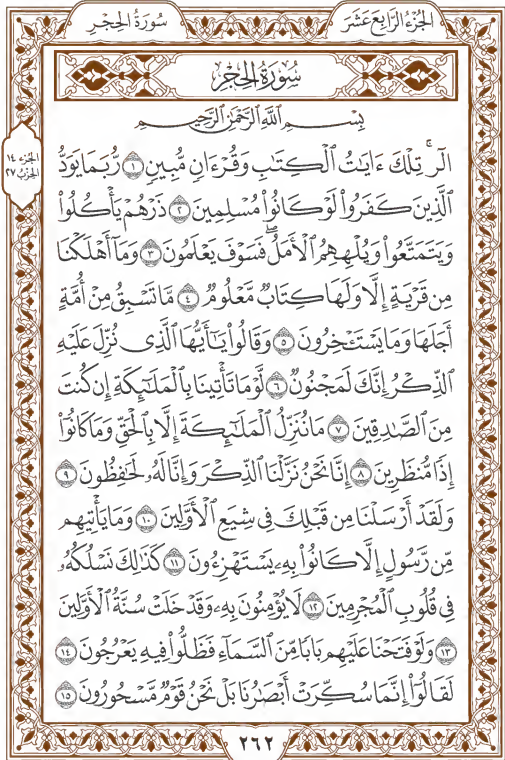 الجُزءُ الرَّابِعَ عَشَرَ
سُورَةُ الحِجْرِ
سُورَةُ الحِجْرِ
الجزء ١٤
الحزب ٢٧
بِسْمِ اللَّهِ الرَّحْمَٰنِ الرَّحِيمِ
الٓرۚ تِلْكَ ءَايَٰتُ ٱلْكِتَٰبِ وَقُرْءَانٍ مُّبِينٍ ١ رُّبَمَا يَوَدُّ
ٱلَّذِينَ كَفَرُوا۟ لَوْ كَانُوا۟ مُسْلِمِينَ ٢ ذَرْهُمْ يَأْكُلُوا۟
وَيَتَمَتَّعُوا۟ وَيُلْهِهِمُ ٱلْأَمَلُ ۖ فَسَوْفَ يَعْلَمُونَ ٣ وَمَآ أَهْلَكْنَا
مِن قَرْيَةٍ إِلَّا وَلَهَا كِتَابٌ مَّعْلُومٌ ٤ مَّا تَسْبِقُ مِنْ أُمَّةٍ
أَجَلَهَا وَمَا يَسْتَـْٔخِرُونَ ٥ وَقَالُوا۟ يَٰٓأَيُّهَا ٱلَّذِى نُزِّلَ عَلَيْهِ
ٱلذِّكْرُ إِنَّكَ لَمَجْنُونٌ ٦ لَّوْ مَا تَأْتِينَا بِٱلْمَلَٰٓئِكَةِ إِن كُنتَ
مِنَ ٱلصَّٰدِقِينَ ٧ مَا نُنَزِّلُ ٱلْمَلَٰٓئِكَةَ إِلَّا بِٱلْحَقِّ وَمَا كَانُوٓا۟
إِذًا مُّنظَرِينَ ٨ إِنَّا نَحْنُ نَزَّلْنَا ٱلذِّكْرَ وَإِنَّا لَهُۥ لَحَٰفِظُونَ ٩
وَلَقَدْ أَرْسَلْنَا مِن قَبْلِكَ فِى شِيَعِ ٱلْأَوَّلِينَ ١٠ وَمَا يَأْتِيهِم
مِّن رَّسُولٍ إِلَّا كَانُوا۟ بِهِۦ يَسْتَهْزِءُونَ ١١ كَذَٰلِكَ نَسْلُكُهُۥ
فِى قُلُوبِ ٱلْمُجْرِمِينَ ١٢ لَا يُؤْمِنُونَ بِهِۦ وَقَدْ خَلَتْ سُنَّةُ ٱلْأَوَّلِينَ
١٣ وَلَوْ فَتَحْنَا عَلَيْهِم بَابًا مِّنَ ٱلسَّمَآءِ فَظَلُّوا۟ فِيهِ يَعْرُجُونَ ١٤
لَقَالُوٓا۟ إِنَّمَا سُكِّرَتْ أَبْصَٰرُنَا بَلْ نَحْنُ قَوْمٌ مَّسْحُورُونَ ١٥
٢٦٢